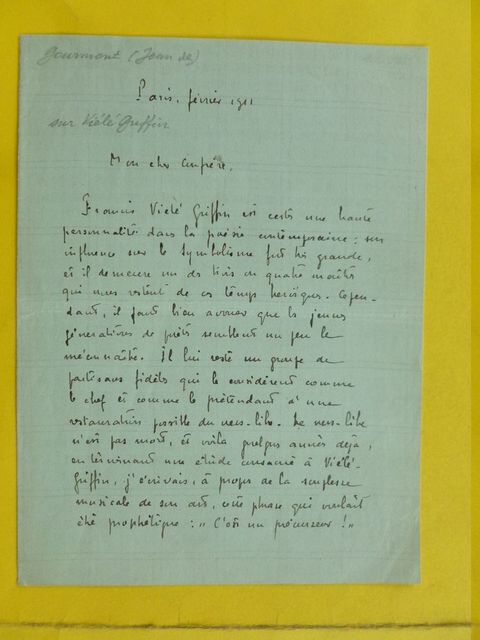 Gourmont (Jean de)
Paris, février 1911
sur Viélé Griffin
Mon cher confrère,
Francis Viélé Griffin est certes une haute
personnalité dans la poésie contemporaine ; son
influence sur le symbolisme fut très grande,
et il demeure un des trois ou quatre maîtres
qui nous restent de ces temps héroïques. Cepen-
dant, il faut bien avouer que les jeunes
générations de poètes semblent un peu le
méconnaître. Il lui reste un groupe de
partisans fidèles qui le considèrent comme
le chef et comme le prétendant à une
restauration possible du vers-libre. Le vers-libre
n'est pas mort, et voilà quelques années déjà,
en terminant une étude consacrée à Viélé-
Griffin, j'écrivais, à propos de la souplesse
musicale de son art, cette phrase qui voulait
être prophétique : „ C'est un précurseur ! "